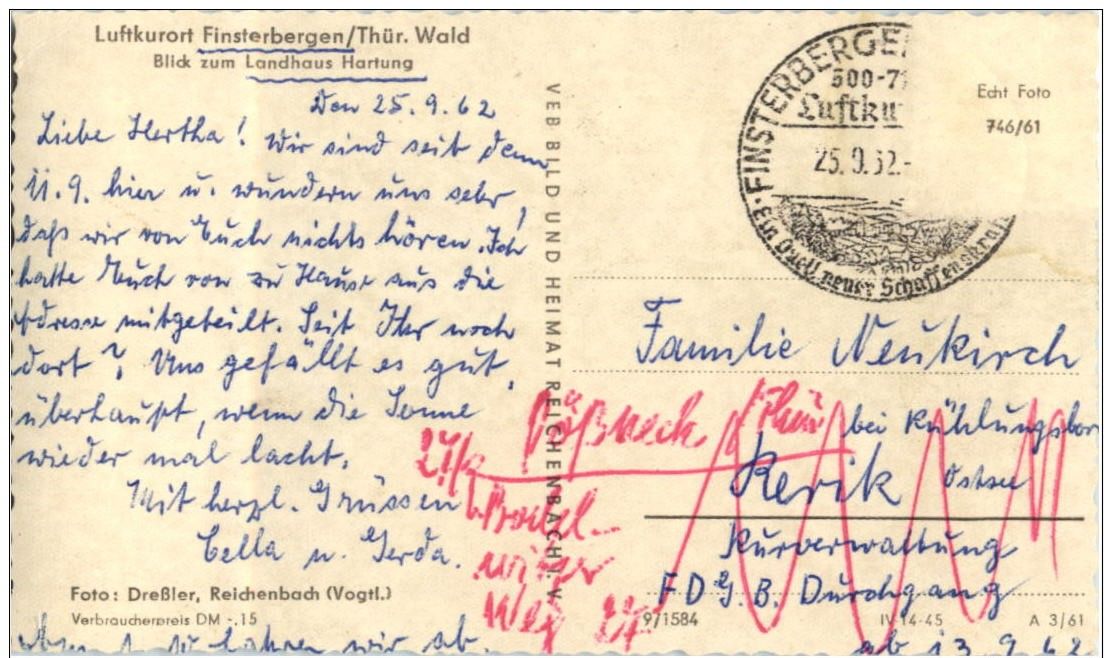 Luftkurort Finsterbergen/Thür. Wald
Blick zum Landhaus Hartung
Den 25.9.62
Liebe Hertha! Wir sind seit dem
11.9. hier u. wundern uns sehr,
daß wir von Euch nichts hören. Ich
hatte Euch von zu Hause aus die
Adresse mitgeteilt. Seit Ihr noch
dort? Uns gefällt es gut,
überhaupt, wenn die Sonne
wieder mal lacht.
Mit herzl. Grüssen
Cella u. Gerda.
Foto: Dreßler, Reichenbach (Vogtl.)
Verbraucherpreis DM -.15
fahren wir ab.
VEB BILD UND HEIMAT REICHENBACH I. V.
FINSTERBERGE
500-7
Luftku
25.9.62.-
Ein Quell neuer Schaffenskraf
Echt Foto
746/61
Familie Neukirch
bei Kühlungsbor
Rerik Ostsee
Kurverwaltung
F D G. B. Durchgang
ab 13 9 62
Pößneck Thür
27/9
Weg 27
9/1584
IV-14-45
A 3/61